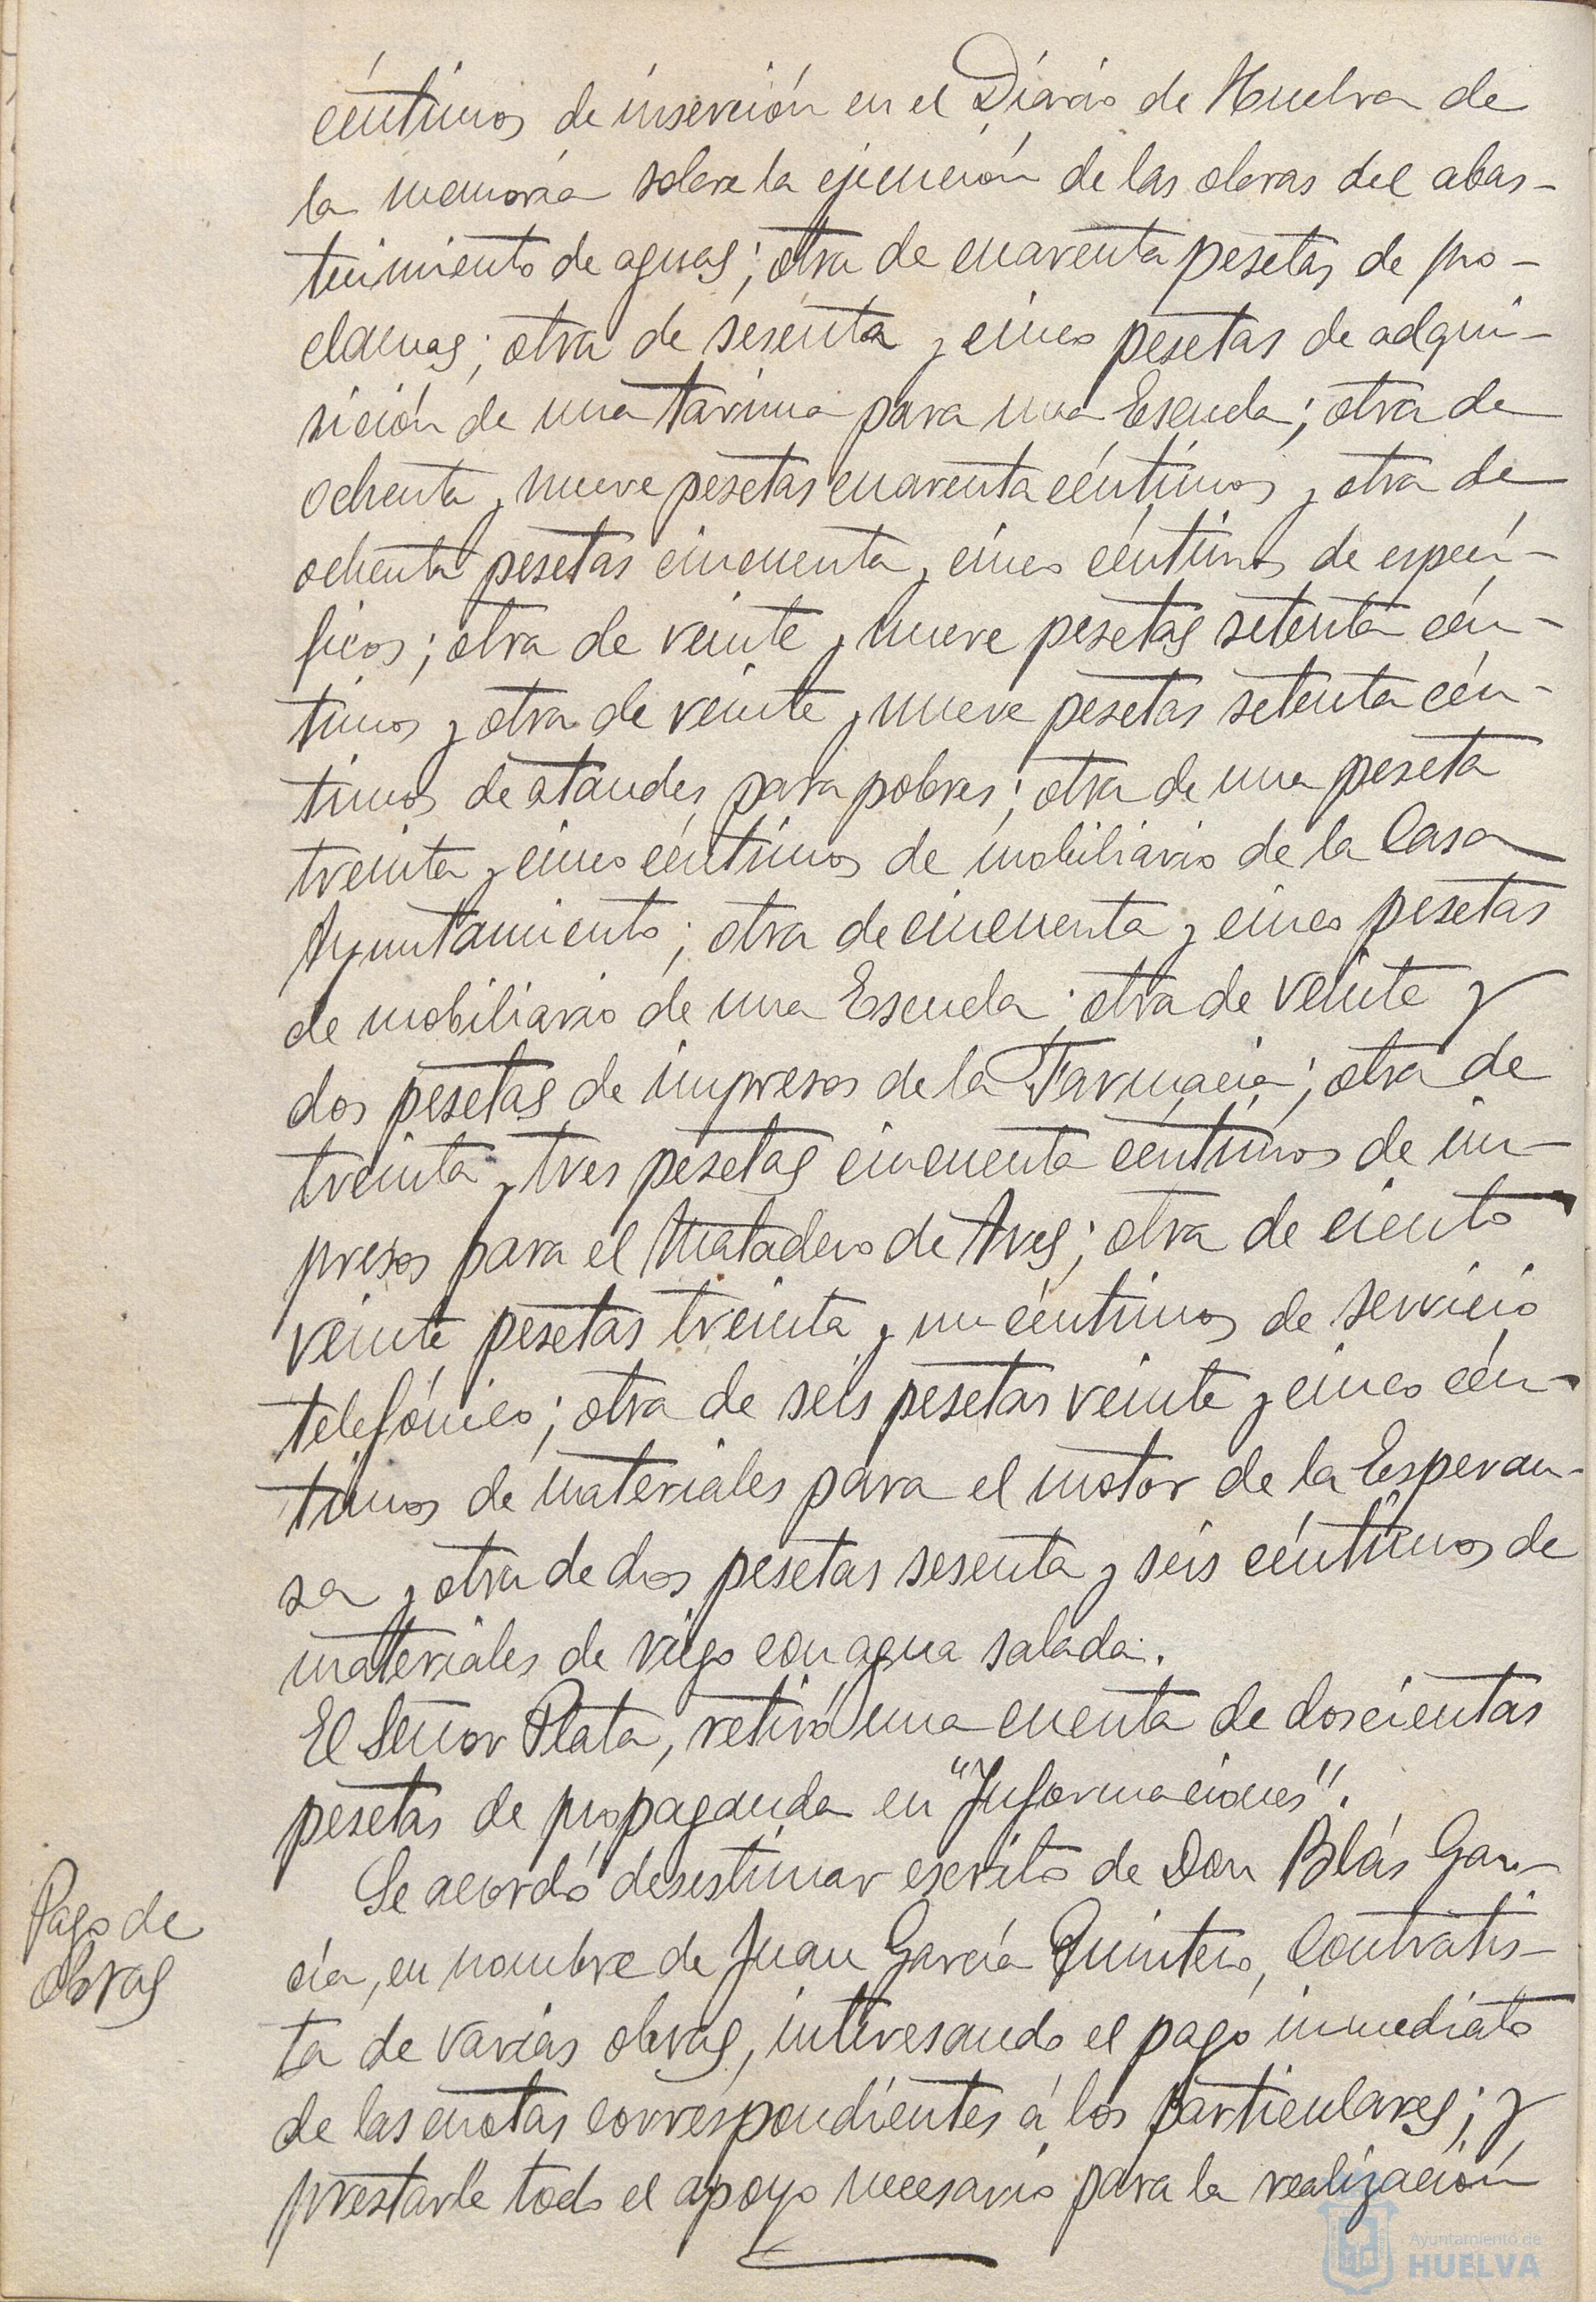 céntimos de inserción en el Diário de Huelva de
la memoria sobre la ejecución de las obras del abas-
tecimiento de aguas; otra de cuarenta pesetas de pro-
clamas; otra de sesenta y cinco pesetas de adqui-
sición de una tarima para una Escuela; otra de
ochenta y nueve pesetas cuarenta céntimos y otra de
ochenta pesetas cincuenta y cinco céntimos de especí-
ficos; otra de veinte y nueve pesetas setenta cén-
timos y otra de veinte y nueve pesetas setenta cén-
timos de ataudes para pobres; otra de una peseta
treinta y cinco céntimos de mobiliario de la Casa
Ayuntamiento; otra de cincuenta y cinco pesetas
de mobiliario de una Escuela; otra de veinte y
dos pesetas de impresos de la Farmacia; otra de
treinta y tres pesetas cincuenta céntimos de im-
presos para el Matadero de Aves; otra de ciento
veinte pesetas treinta y un céntimos de servicio
telefónico; otra de seis pesetas veinte y cinco cén-
timos de materiales para el motor de la Esperan-
sa y otra de dos pesetas sesenta y seis céntimos de
materiales de riego con agua salada.
El Señor Plata, retiró una cuenta de doscientas
pesetas de propaganda en "Informaciones".
Pago de
obras
Se acordó desestimar escrito de Don Blás Gar-
cía, en nombre de Juan García Quintero, Contratis-
ta de varias obras, interesando el pago inmediato
de las cuotas correspondientes á los particulares; y
prestarle todo el apoyo necesario para la realización
Ayuntamiento de
HUELVA